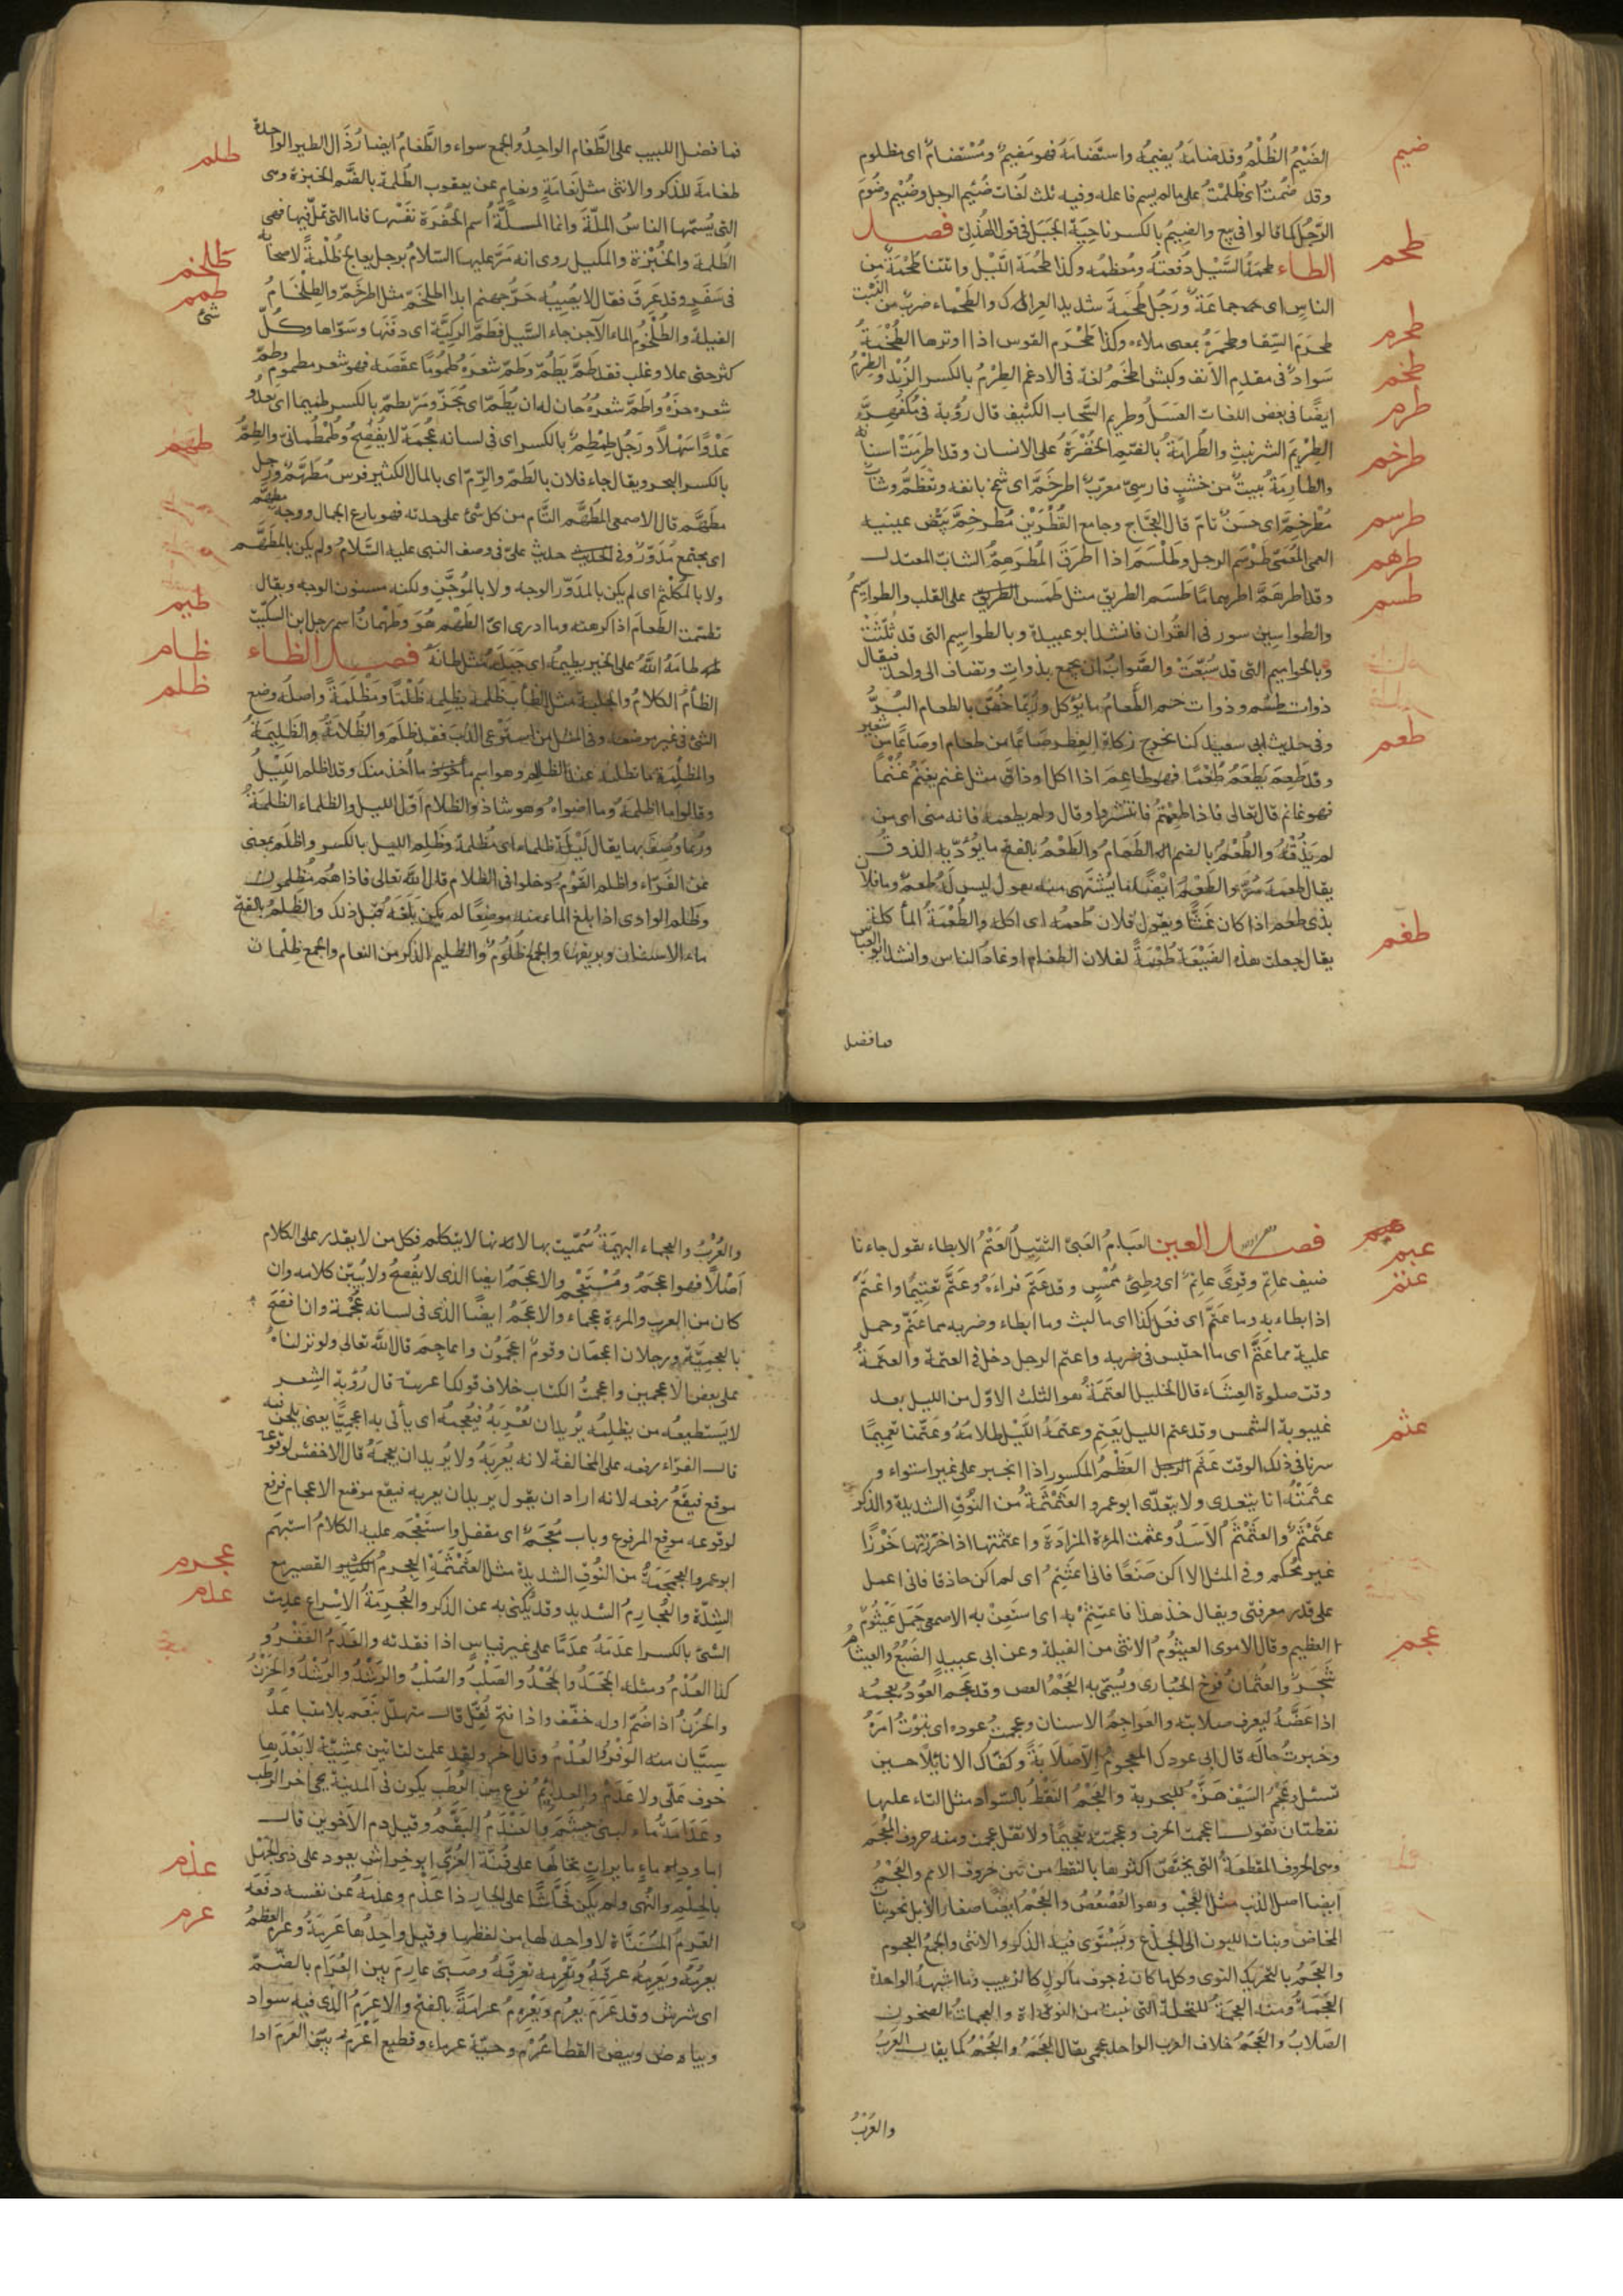 الضَيْمُ الظُلْمُ وقد ضامَهُ يضيمُهُ واستضامَهُ فهو مَضيمٌ ومُسْتضامٌ اى مظلوم
ضيم
وقد ضُمتُ اى ظُلِمْتُ على ما لم يسم فاعله وفيه ثلث لغات ضُئيم الرجل وضُيْم وضُومَ
الرَّجُلُ كما قالوا فى بيع والضِيمُ بالكسر ناحِيَة الجَبَل فى قول الهُذلِىّ فصل
الطاء طحمَةُ السَّيْل دُفعتُه ومُعظمُه وكذا طحْمَة اللَّيْل واتتنا طحْمَةٌ من
طحم
الناسِ اى جماعَة ورَجُل طُحَمَة شديد العِراك والطَحْماء ضربٌ من النَّبْت
طحرم
طحرَمَ السِّقا وطحمَرَهُ بمعنى ملاءه وكذا طَحْرَم القوس اذا اوترها الطُخْمَةُ
طخم
سَوادٌ فى مقدم الأنف وكبش اطخَمُ لغة فى الادغم الطِرْمُ بالكسر الزُبْد والطِرْمُ
طرم
ايضًا فى بعض اللغات العَسَلُ وطريم السَّحاب الكثيف قال رُؤبة فى مُكْفَهِرّ
الطِرْيَم الشرنبثِ والطُرامَةُ بالضمّ الخُضْرَةُ على الاسنان وقد اطرَمَتْ اسنانُه
طرخم
والطارِمَةُ بيتٌ من خشبٍ فارسىّ معرّبٌ اطرخَمَّ اى شمخ بانفه وتعظّم وشابٌ
مُطْرخِمٌّ اى حسَنٌ تامّ قال العجَّاج وجامع القُطْرَيْنِ مُطرخِمِّ بيّض عينيه
طرسم
العمى المُعَمّى طَرْسَم الرجل وطَلْسَمَ اذا اطرَقَ المُطْرَهِمُّ الشابّ المعتدل
طرهم
وقد اطرهَمَّ اطرِهمامًا طَسَم الطريق مثل طَمَس الطريق على القلب والطواسِيمُ
طسم
والطواسِين سور فى القُران فانشد ابو عبيدة وبالطواسِيم التى قد ثُلّثَتْ
وبالحواسيم التى قد سُبّعَتْ والصَّوابُ ان يجمع بذوات وتضاف الى واحد فيقال
ذوات طسم وذوات حم الطَّعامُ ما يؤكل ورُبَّما خُصَّ بالطعام البُرُّ
وفى حديث ابى سعيد كنا نخرج زكاة الفِطر صَاعًا من طعام اوصَاعًا من شعير
طعم
وقد طَعِمَ يَطعَمُ طُعْمًا فهو طاعِمٌ اذا اكل اوذاق مثل غَنِم يغنَمُ غُنْمًا
فهو غانم قال تعالى فاذا طعِمْتُم فانتشروا وقال ومن لم يطعمه فانه منى اى من
لم يَذُقْهُ والطُعْمُ بالضم الطَعامُ والطَعْمُ بالفتح ما يُؤدّيه الذوق
يقال طعمه مُرٌّ والطَعْمُ ايضًا ما يُشتهى منه يقول ليس له طعمٌ وما فلان
بذى طعم اذا كان غَثًّا ويقول فلان طُعمُه اى اكله والطُعْمَةُ المأكلة
يقال جعلت هذه الضَيْعَة طُعْمَةً لفلان الطغام اوغاد الناس وانشد ابو العباس
طغم
فما فضل
فما فضل اللبيب على الطَّغام الواحِدُ والجمع سواء والطَّغامُ ايضا رُذَّال الطير الواحدة
طغامَة للذكر والانثى مثل نَعامَةٍ ونعام عن يعقوب الظُلمَة بالضّم الخبزة وهى
طلم
التى يُسمّيها الناسُ الملّةَ وانما الملّة اسم الحُفرَة نفْسها فاما التى تملّ فيها فهى
الطُلمَة والخُبْزة والمليل روى انه مَرّ عليه السّلامُ برجل يعالج طُلْمةً لاصحابِه
فى سَفَرٍ وقد عَرِقَ فقال لا يصُيبُه حَرّ جهنم ابدا اطلخَمّ مثل اطرخَمّ والطِلْخامُ
طلخم
الفيلة والطُلْخومُ الماء الآجن جاء السَّيل فطَمَّ الركيَّة اى دفَنَها وسَوّاها وكُلّ
طمم
شئ
كثر حتى علا وغلب فقد طَمَّ يَطُمّ وطَمّ شعَرَه طُمُومًا عقَصَه فهو شعر مطموم وطمّ
شعره جزّه واطَمَّ شعْرُه حان له ان يُطَمّ اى يُجَزّ ومَرّ يطمّ بالكسر طميما اى يعدُو
عَدْوًا سَهْلاً ورَجُل طِمْطِمٌ بالكسر اى فى لسانه عُجْمَة لا يفُصِحُ وطُمْطُمانىّ والطِمُّ
طهم
بالكسر البحر ويقال جاء فلان بالطَمّ والرِّمّ اى بالمال الكثير فرس مُطَهَّمٌ ورجل
مطَهَّم قال الاصمعى المُطهَّم التَّام من كل شئ على حدته فهو بارع الجمال ووجه مطهّم
اى مجتمع مُدَوّرٌ وفى الحديث حديث علىّ فى وصف النبى عليه السَّلامُ ولم يكن بالمطهَّم
ولا بالمُكَلْثَمِ اى لم يكن بالمدَوّر الوجه ولا بالمُوَجَّنِ ولكنه مسنون الوجه ويقال
تطهمت الطعامَ اذا كرهته وما ادرى اىّ الطهْم هُوَ وطهْمانُ اسم رجل ابن السكّيت
طيم
طامَهُ اللهُ على الخير يطيمُه اى جَبَلَه مثل طانَهُ فصل الظاء
الظَأمُ الكلامُ والجلبة مثل الظأب ظلمه يظلِمه ظُلْمًا ومَظْلَمَةً واصله وضع
ظام
ظلم
الشئ فى غير موضعه وفى المثل من استَرعَى الذئب فقد ظلَمَ والظُلامَةُ والظَلِيمَةُ
والمظلِمَة ما تطلبه عند الظالم وهو اسم ما أُخذ منك وقد اظلم اللَيْلُ
وقالوا ما اظلمَهُ وما اضواه وهو شاذ والظلام اوّل الليل والظلماء الظلمَةُ
ورُبَّما وُصِفَ بها يقال لَيْلَة ظلماء اى مُظلمة وظَلِم الليل بالكسر واظلَم بمعنى
عن الفَرّاء واظلم القوْمُ دخلوا فى الظلام قال الله تعالى فاذا هُمْ مُظلِمون
وظُلِم الوادى اذا بلغ الماء منه موضِعًا لم يكن بَلَغَهُ قبْل ذلك والظَلمُ بالفتح
ماء الاسنان وبريقها والجمع ظُلُومٌ والظليم الذكر من النعام والجمع ظلْمان
فصل العين العبَامُ العَيىّ الثقيلُ العَتْمُ الابطاء يقول جاءنا
عبم
ضيف عاتِم وقِرىً عاتِمٌ اى بطِئٌ مُمْسٍ وقد عَتَمَ قراءهُ وعَتَّمَ تعْتِيمًا واعْتَمَ
عتم
اذا ابطاء به وما عتّم اى فعَل كذا اى ما لبث وما ابطاء وضربه فما عَتّم وحمل
عليه فما عَتَّم اى ما احتبس فى ضربه واعتم الرجل دخل فى العتمة والعتَمَةُ
وقت صلوة العِشَاء قال الخليل العتَمَةُ هو الثلث الاوّل من الليل بعد
غيبوبة الشمس وقد عتم الليل يَعْتِم وعتمَةُ اللَيْل ظلامُهُ وعَتَّمْنا تعتيمًا
سرنا فى ذلك الوقت عَثَم العَظْمُ المكسور اذا انجبر على غير استواء و
عثم
عثمْتُهُ انا يتعدى ولا يتعدّى ابو عمرو العَثَمْثَمَةُ من النُوقِ الشديدة والذكر
عثمْثَمٌ والعثمْثَم الاسَدُ وعثمت المرءة المزادَةَ واعتثمتها اذا خرَزتها خرزًا
غير مُحكم وفى المثل الا اكن صَنَعًا فانى اعتثِمُ اى ان لم اكن حاذقا فانى اعمل
على قدر معرفتى ويقال خذ هذا فاعتثِمْ به اى استعِنْ به الاصمعى جَمَل عَيْثُومٌ
العظيم وقال الاموى العيثُومُ الانثى من الفيلة وعن ابى عبيد الضَبُعُ والعيثام
عجم
شَجَر والعُثمانُ فرخ الحُبَارى ويُسمّى به العَجْمُ العض وقد عَجَمَ العُودَ يعجمُه
اذا عَضَّهُ ليعرف صلابته والعَواجمُ الاسنان وعجمتُ عوده اى بلوْتُ امرَهُ
وخبرتُ حالَه قال ابى عودك المعجومُ الاصَلابَةً وكفاك الا نائلاً حين
تسئل وعَجْمُ السَيْفِ هَزُّهُ للتجربة والعَجْمُ النَقْطُ بالسَّواد مثل التاء عليها
نقطتان تقول اعجمت الحرف وعجمته تعجيمًا ولا تقل عجمت ومنه حروف المُعجَم
وهى الحروف المقطعة التى يختصّ اكثرها بالنقط من بين حروف الامم والعَجْمُ
ايضا اصل الذنب مثل العَجْب وهو العُصْعُصُ والعَجْمُ ايضا صغار الابل نحو بنات
المخاض وبنات اللبون الى الجذَع ويَسْتَوى فيه الذكر والانثى والجمع العجوم
والعَجَمُ بالتحريك النوى وكل ما كان فى جوف مأكول كالزبيب وما اشبههُ الواحدة
العَجَمةُ ومنه العجمَةُ للنخلة التى تنبت من النواة والعجماتُ الصخور
الصِلابُ والعَجَمُ خلاف العرب الواحد عجمى يقال العَجَمُ والعُجْمُ كما يقال العَرَبُ
والعُرْبُ
والعُرْبُ والعجماء البهيمَةُ سُمّيت بها لانها لا يتكلم فكل من لا يقدر على الكلام
اَصْلاً فهو اعجَمُ ومُسْتَعْجِم والاعجَمُ ايضا الذى لا يُفصِحُ ولا يُبَيّن كلامه وان
كان من العرب والمرءة عجماء والاعجَمُ ايضًا الذى فى لسانه عُجْمَة وان افصَحَ
بالعجميّة ورجلان اعجمَان وقومٌ اعجمُون واعاجِمَ قال الله تعالى ولو نزلناهُ
على بعض الاعجمين واعجمتُ الكتاب خلاف قولك اعربته قال رُؤبة الشِعر
لا يَستطيعُه من يظلِمُه يُريد ان يُعْرِبَهُ فيُعجِمُه اى يأتى به اعجميًّا يعنى يلحن فيه
قال الفرّاء رفعه على المخالفة لانه يعْرِبهُ ولا يُريد ان يعجِمَهُ قال الاخفش لوقوعه
موقع فيقَعُ رفعه لانه اراد ان يقول يريد ان يعربه فيقع موقع الاعجام فرفع
لوقوعه موقع المرفوع وباب مُعْجَمٌ اى مقفل واستَعْجَم عليه الكلامُ استبهم
ابو عمرو العجمجمَةُ من النُوقِ الشديدة مثل العَثَمْثَمَةِ العجرمُ القصير مع
عجرم
الشِدّة والعُجارِمُ الشديد وقد يُكنى به عن الذكر والعَجْرمَةُ الاِسْراع عدمت
عدم
الشئ بالكسر اعدَمُهُ عدَمًا على غير قياسٍ اذا فقدته والعَدَمُ الفَقْرُ و
كذا العُدْمُ ومثله الجَحَدُ والجُحْدُ والصَلَبُ والصُلْبُ والرَشَدُ والرُشْدُ والحَزَنُ
والحُزْنُ اذا ضُمّ اوله خفّف واذا فتح ثُقّل قال متهلّل بنَعَم بلا متباعد
سِيّان منه الوَفْرُ والعُدْمُ وقال آخر ولقد علمت لتاتين عشِيّة لا بَعْدَها
خوف علىّ ولا عَدَمْ والعدائِمُ نوع من الرُطَب يكون فى المدينة يجئ اخر الرُطَب
وعَدامَة ماء لبنى جشَمَ والعَنْدَمُ البقّمُ وقيل دم الاَخوين قال
اما ودماءٍ مايراتٍ تخالها على قُنّة العُزّى ابو خِراش يعود على ذى الجهْل
بالحِلْمِ والنُهى ولم يكن فَحَّاشًا على الجارِ ذا عَذْمِ وعذَمَهُ عن نفسه دفعَه
عذم
العَرِمُ المُسَنَّاة لا واحد لها من لفظها وقيل واحِدُها عَرِمَةٌ وعرَم العظمَ
عرم
يعرُمُه ويَعرِمُه عَرقَهُ وتعْرّمه تعرّقَهُ وصَبىّ عارِمٌ بين العُرَام بالضّمّ
اى شرِسٌ وقد عَرَم يعرُمُ ويعْرِمُ عرامَةً بالفتح والاعرَمُ الذى فيه سواد
وبياض وبيض القطا عُرْم وحيّة عرماء وقطيع اعْرَم بيّنُ العَرَم اذا